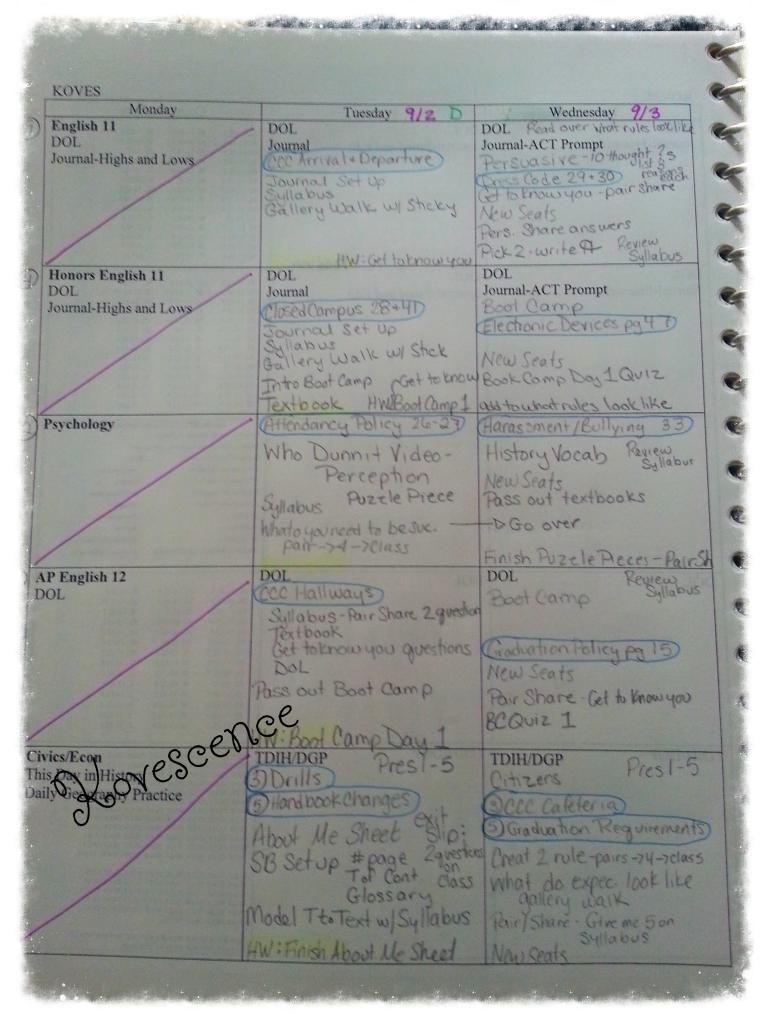 KOVES
Monday
Tuesday 9/2 D
Wednesday 9/3
English 11
DOL
Journal-Highs and Lows
DOL
Journal
CCC Arrival + Departure
Journal Set Up
Syllabus
Gallery Walk w/ Sticky
HW: Get to know you
DOL Read over what rules look like
Journal-ACT Prompt
Persuasive - 10 thought ?s
Dress Code 29+30
Get to know you - pair share
New Seats
Pers. Share answers
Pick 2 - write
Review
Syllabus
Honors English 11
DOL
Journal-Highs and Lows
DOL
Journal
Closed Campus 28+41
Journal Set Up
Syllabus
Gallery Walk w/ Stick
Intro Boot Camp Get to know
Textbook HW: Boot Camp 1
DOL
Journal-ACT Prompt
Boot Camp
Electronic Devices pg 47
New Seats
Book Camp Day 1 Quiz
add to what rules look like
Psychology
Attendancy Policy 26-27
Who Dunnit Video -
Perception
Puzzle Piece
Syllabus
What do you need to be suc.
pair -> 4 -> class
Harassment/Bullying 33
History Vocab
Review
Syllabus
New Seats
Pass out textbooks
Go over
Finish Puzzle Pieces - Pair Sh
AP English 12
DOL
DOL
CCC Hallways
Syllabus - Pair Share 2 question
Textbook
Get to know you questions
DOL
Pass out Boot Camp
HW: Boot Camp Day 1
DOL
Review
Syllabus
Boot Camp
Graduation Policy pg 15
New Seats
Pair Share - Get to know you
BC Quiz 1
Civics/Econ
This Day in History
Daily Geography Practice
Kovescence
TDIH/DGP Pres 1-5
3) Drills
5) Handbook Changes
About Me Sheet
exit slip:
2 questions
on
class
SB Set up # page
T of Cont
Glossary
Model T to Text w/ Syllabus
HW: Finish About Me Sheet
TDIH/DGP
Citizens Pres 1-5
CCC Cafeteria
5) Graduation Requirements
Creat 2 rule - pairs -> 4 -> class
What do expec. look like
gallery walk
Pair/Share - Give me 5 on
Syllabus
New Seats